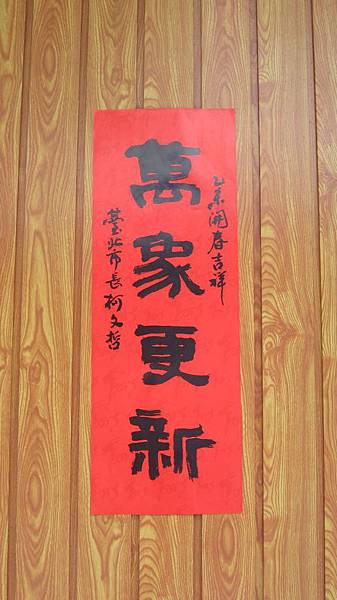 乙未開春吉祥
萬象更新
臺北市長柯文哲